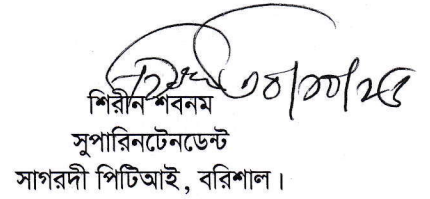 ৩০/১১/২৫
শিরীন শবনম
সুপারিনটেনডেন্ট
সাগরদী পিটিআই, বরিশাল।